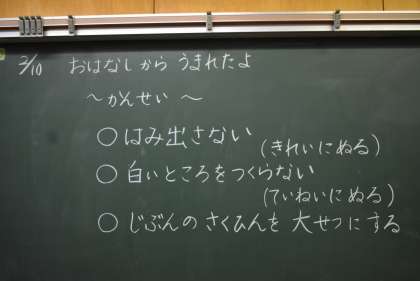 2/10 おはなしから うまれたよ
～かんせい～
○はみ出さない
(きれいにぬる)
○白いところをつくらない
(ていねいにぬる)
○じぶんの さくひんを 大せつにする